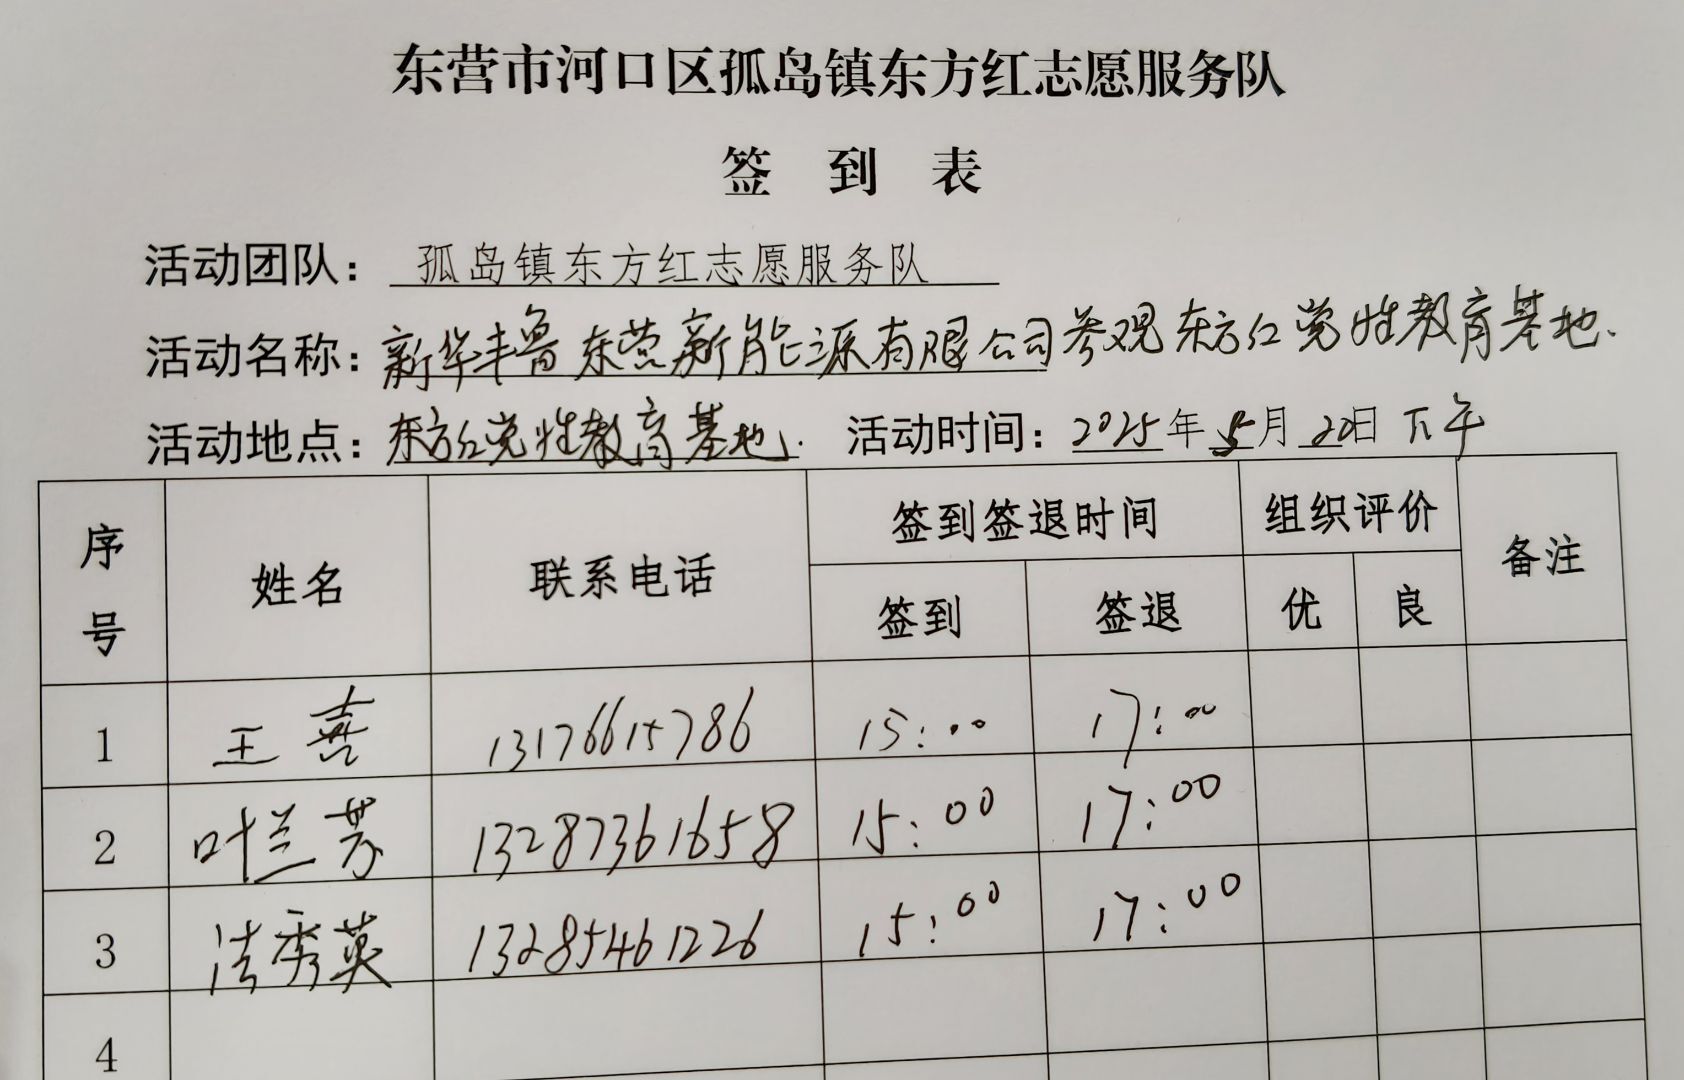 东营市河口区孤岛镇东方红志愿服务队
签 到 表
活动团队：孤岛镇东方红志愿服务队
活动名称：新华丰鲁东营新能源有限公司参观东方红党性教育基地.
活动地点：东方红党性教育基地. 活动时间：2025年5月20日下午
序号 姓名 联系电话 签到签退时间 组织评价 备注
签到 签退 优 良
1 王喜 13176615786 15:00 17:00
2 叶兰芬 13287361658 15:00 17:00
3 法秀英 13285461226 15:00 17:00
4